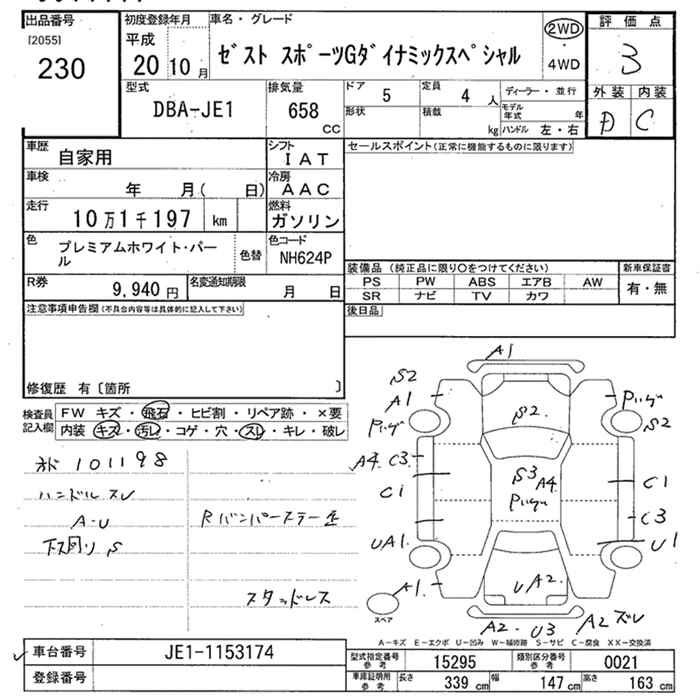 出品番号
[2055]
230
初度登録年月
平成
20 10 月
車名・グレード
ゼスト スポーツGダイナミックスペシャル
2WD
・
4WD
評価点
3
外装 内装
D C
型式
DBA-JE1
排気量
658
CC
ドア
5
定員
4 人
形状
積載
kg
ディーラー・並行
モデル年式 年
ハンドル 左・右
車歴
自家用
シフト
IAT
車検
年 月( 日)
冷房
AAC
走行
10万1千197 km
燃料
ガソリン
色
プレミアムホワイト・パー
ル
色替
色コード
NH624P
R券
9,940 円
名変通知期限
月 日
セールスポイント(正常に機能するものに限ります)
装備品 (純正品に限り〇をつけてください)
PS PW ABS エアB AW
SR ナビ TV カワ
新車保証書
有・無
後日品
注意事項申告欄(不具合内容等は具体的に記入して下さい)
修復歴 有〔箇所 〕
検査員
記入欄
FW キズ・飛石・ヒビ割・リペア跡・×要
内装・キズ・汚レ・コゲ・穴・スレ・キレ・破レ
101198
ハンドルスレ
A-U
下回りS
Rバンパーステー歪
スタッドレス
A1
S2
A1
S2
S2
A4 C3
S3
A4
C1
C1
C3
UA1
U1
A1
UA2
A2-U3
A2ズレ
スペア
A-キズ E-エクボ U-凹み W-補修跡 S-サビ C-腐食 XX-交換済
車台番号
JE1-1153174
登録番号
型式指定番号
参考
15295
類別区分番号
参考
0021
車庫証明用
参考
長さ
339 cm
幅
147 cm
高さ
163 cm